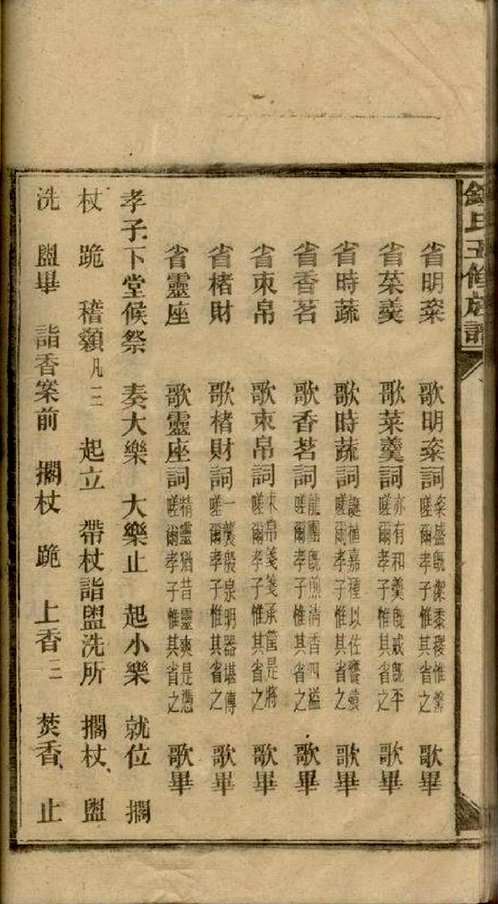 氏五修族譜
省明粢　歌明粢詞　粢盛旣潔黍稷惟馨嗟爾孝子惟其省之　歌畢
省菜羹　歌菜羹詞　亦有和羹旣戒旣平嗟爾孝子惟其省之　歌畢
省時蔬　歌時蔬詞　植嘉種以佐饗嗟爾孝子惟其省之　歌畢
省香茗　歌香茗詞　龍團旣煎清香四溢嗟爾孝子惟其省之　歌畢
省束帛　歌束帛詞　束帛箋箋承筐是將嗟爾孝子惟其省之　歌畢
省楮財　歌楮財詞　一泉明器堪傳嗟爾孝子惟其省之　歌畢
省靈座　歌靈座詞　精靈猶昔靈爽是憑嗟爾孝子惟其省之　歌畢
孝子下堂候祭　奏大樂　大樂止　起小樂　就位　擱
杖　跪　稽顙凡三　起立　帶杖詣盥洗所　擱杖　盥
洗　盥畢　詣香案前　擱杖　跪　上香三　焚香　止